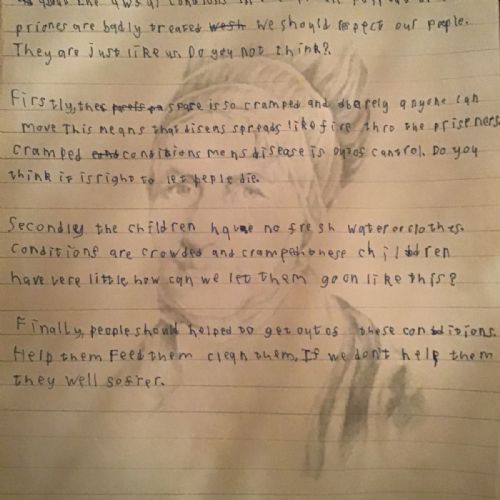 about the awful conditions
priones are badly treated wesh we should respect our people.
They are just like us. Do you not think?
Firstly, the space is so cramped and barely anyone can
move This means that diseas spreads like fire thro the prisoners
cramped conditions mens disease is out of control. Do you
think it is right to let peple die.
Secondley the children have no fresh water or clothes.
Conditions are crowded and cramped these children
have vere little how can we let them go on like this?
Finally, people should helped to get out of these conditions.
Help them Feed them clean them. If we don't help them
they well sofrer.